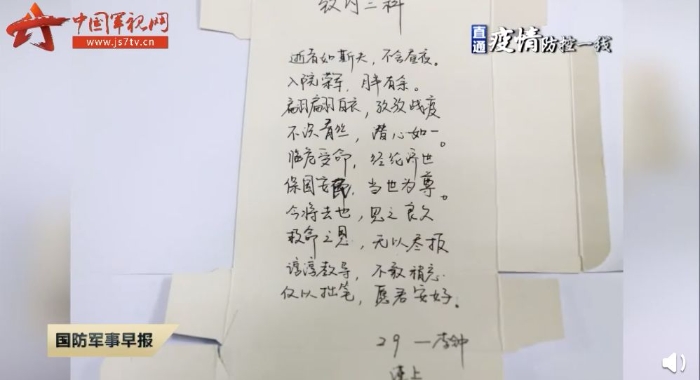 中国军视网
www.js7tv.cn
直通 疫情防控一线
致内三科
逝者如斯夫，不舍昼夜。
入院荣军，月半有余。
翩翩白衣，孜孜战疫
潜心如一。
临危受命，经纶济世
保国安民，当世为尊。
今将去也，思之良久
救命之恩，无以尽报
谆谆教导，不敢稍忘
仅以拙笔，愿君安好。
29 一李钟
国防军事早报